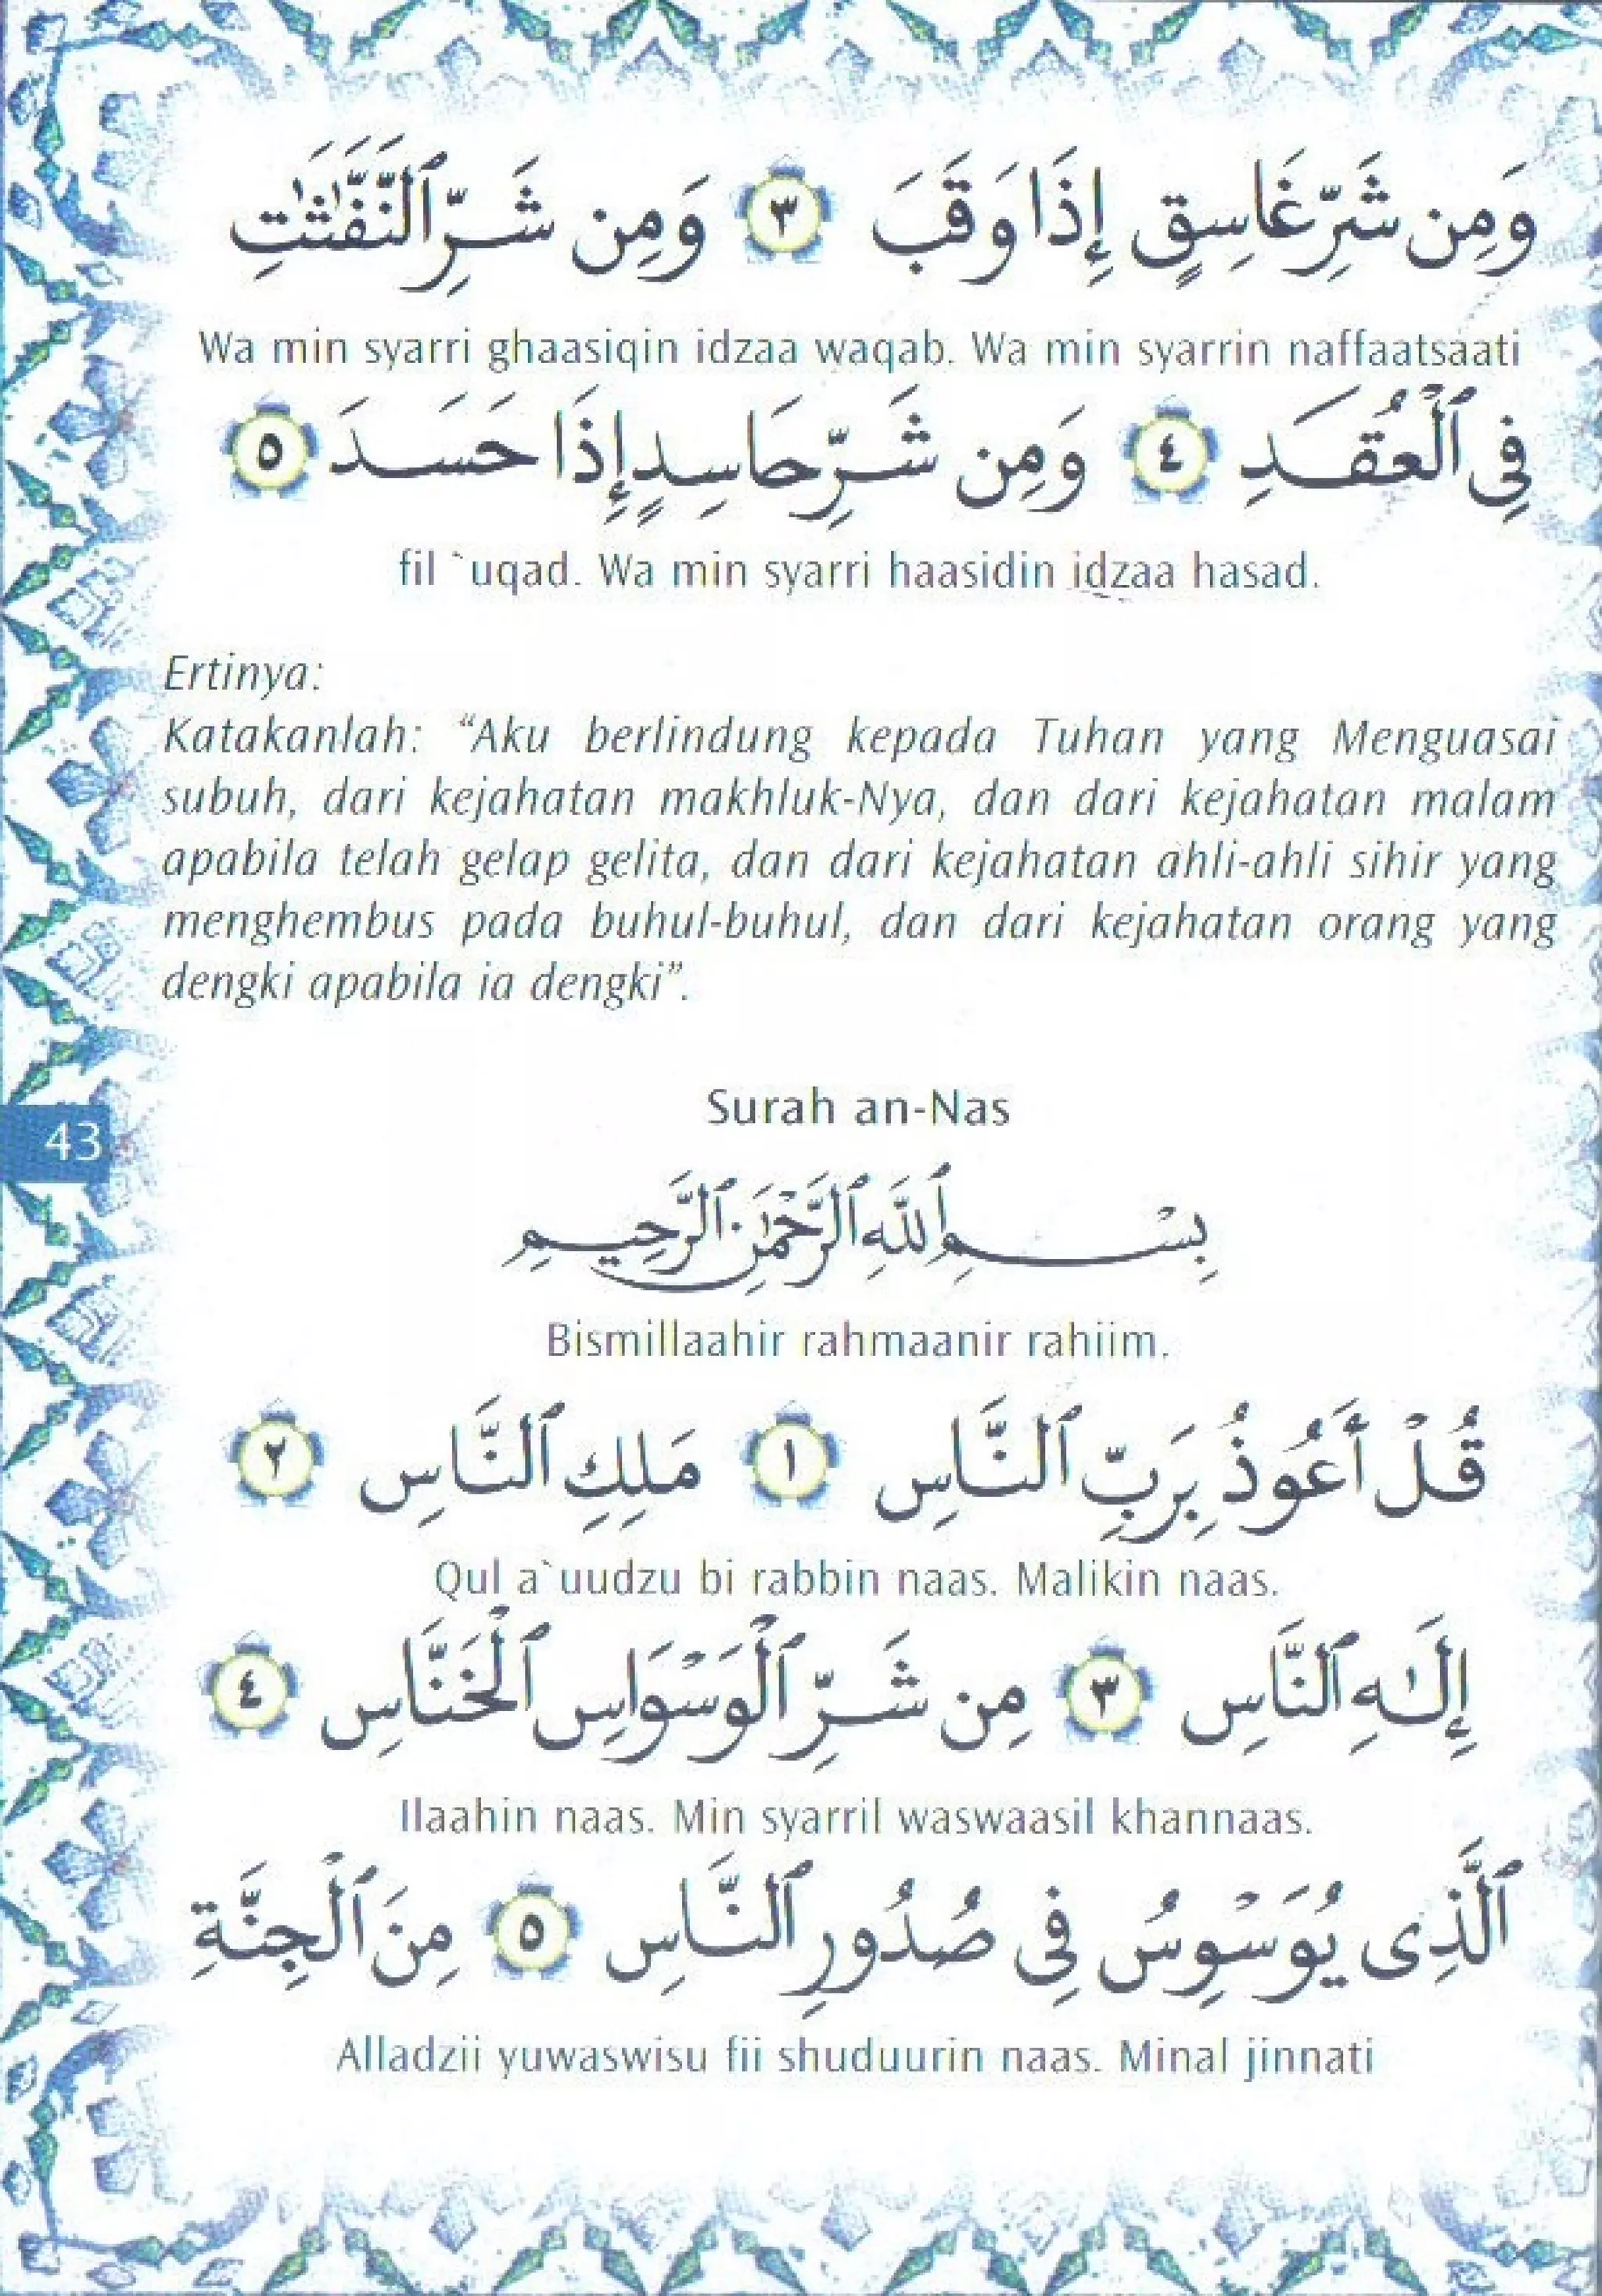 وَمِن شَرِّ غَاسِقٍ إِذَا وَقَبَ ٣ وَمِن شَرِّ ٱلنَّفَّٰثَٰتِ
Wa min syarri ghaasiqin idzaa waqab. Wa min syarrin naffaatsaati
فِى ٱلْعُقَدِ ٤ وَمِن شَرِّ حَاسِدٍ إِذَا حَسَدَ ٥
fil `uqad. Wa min syarri haasidin idzaa hasad.
Ertinya:
Katakanlah: “Aku berlindung kepada Tuhan yang Menguasai
subuh, dari kejahatan makhluk-Nya, dan dari kejahatan malam
apabila telah gelap gelita, dan dari kejahatan ahli-ahli sihir yang
menghembus pada buhul-buhul, dan dari kejahatan orang yang
dengki apabila ia dengki”.
Surah an-Nas
43
بِسْمِ ٱللَّهِ ٱلرَّحْمَٰنِ ٱلرَّحِيمِ
Bismillaahir rahmaanir rahiim.
قُلْ أَعُوذُ بِرَبِّ ٱلنَّاسِ ١ مَلِكِ ٱلنَّاسِ ٢
Qul a`uudzu bi rabbin naas. Malikin naas.
إِلَٰهِ ٱلنَّاسِ ٣ مِن شَرِّ ٱلْوَسْوَاسِ ٱلْخَنَّاسِ ٤
Ilaahin naas. Min syarril waswaasil khannaas.
ٱلَّذِى يُوَسْوِسُ فِى صُدُورِ ٱلنَّاسِ ٥ مِنَ ٱلْجِنَّةِ
Alladzii yuwaswisu fii shuduurin naas. Minal jinnati